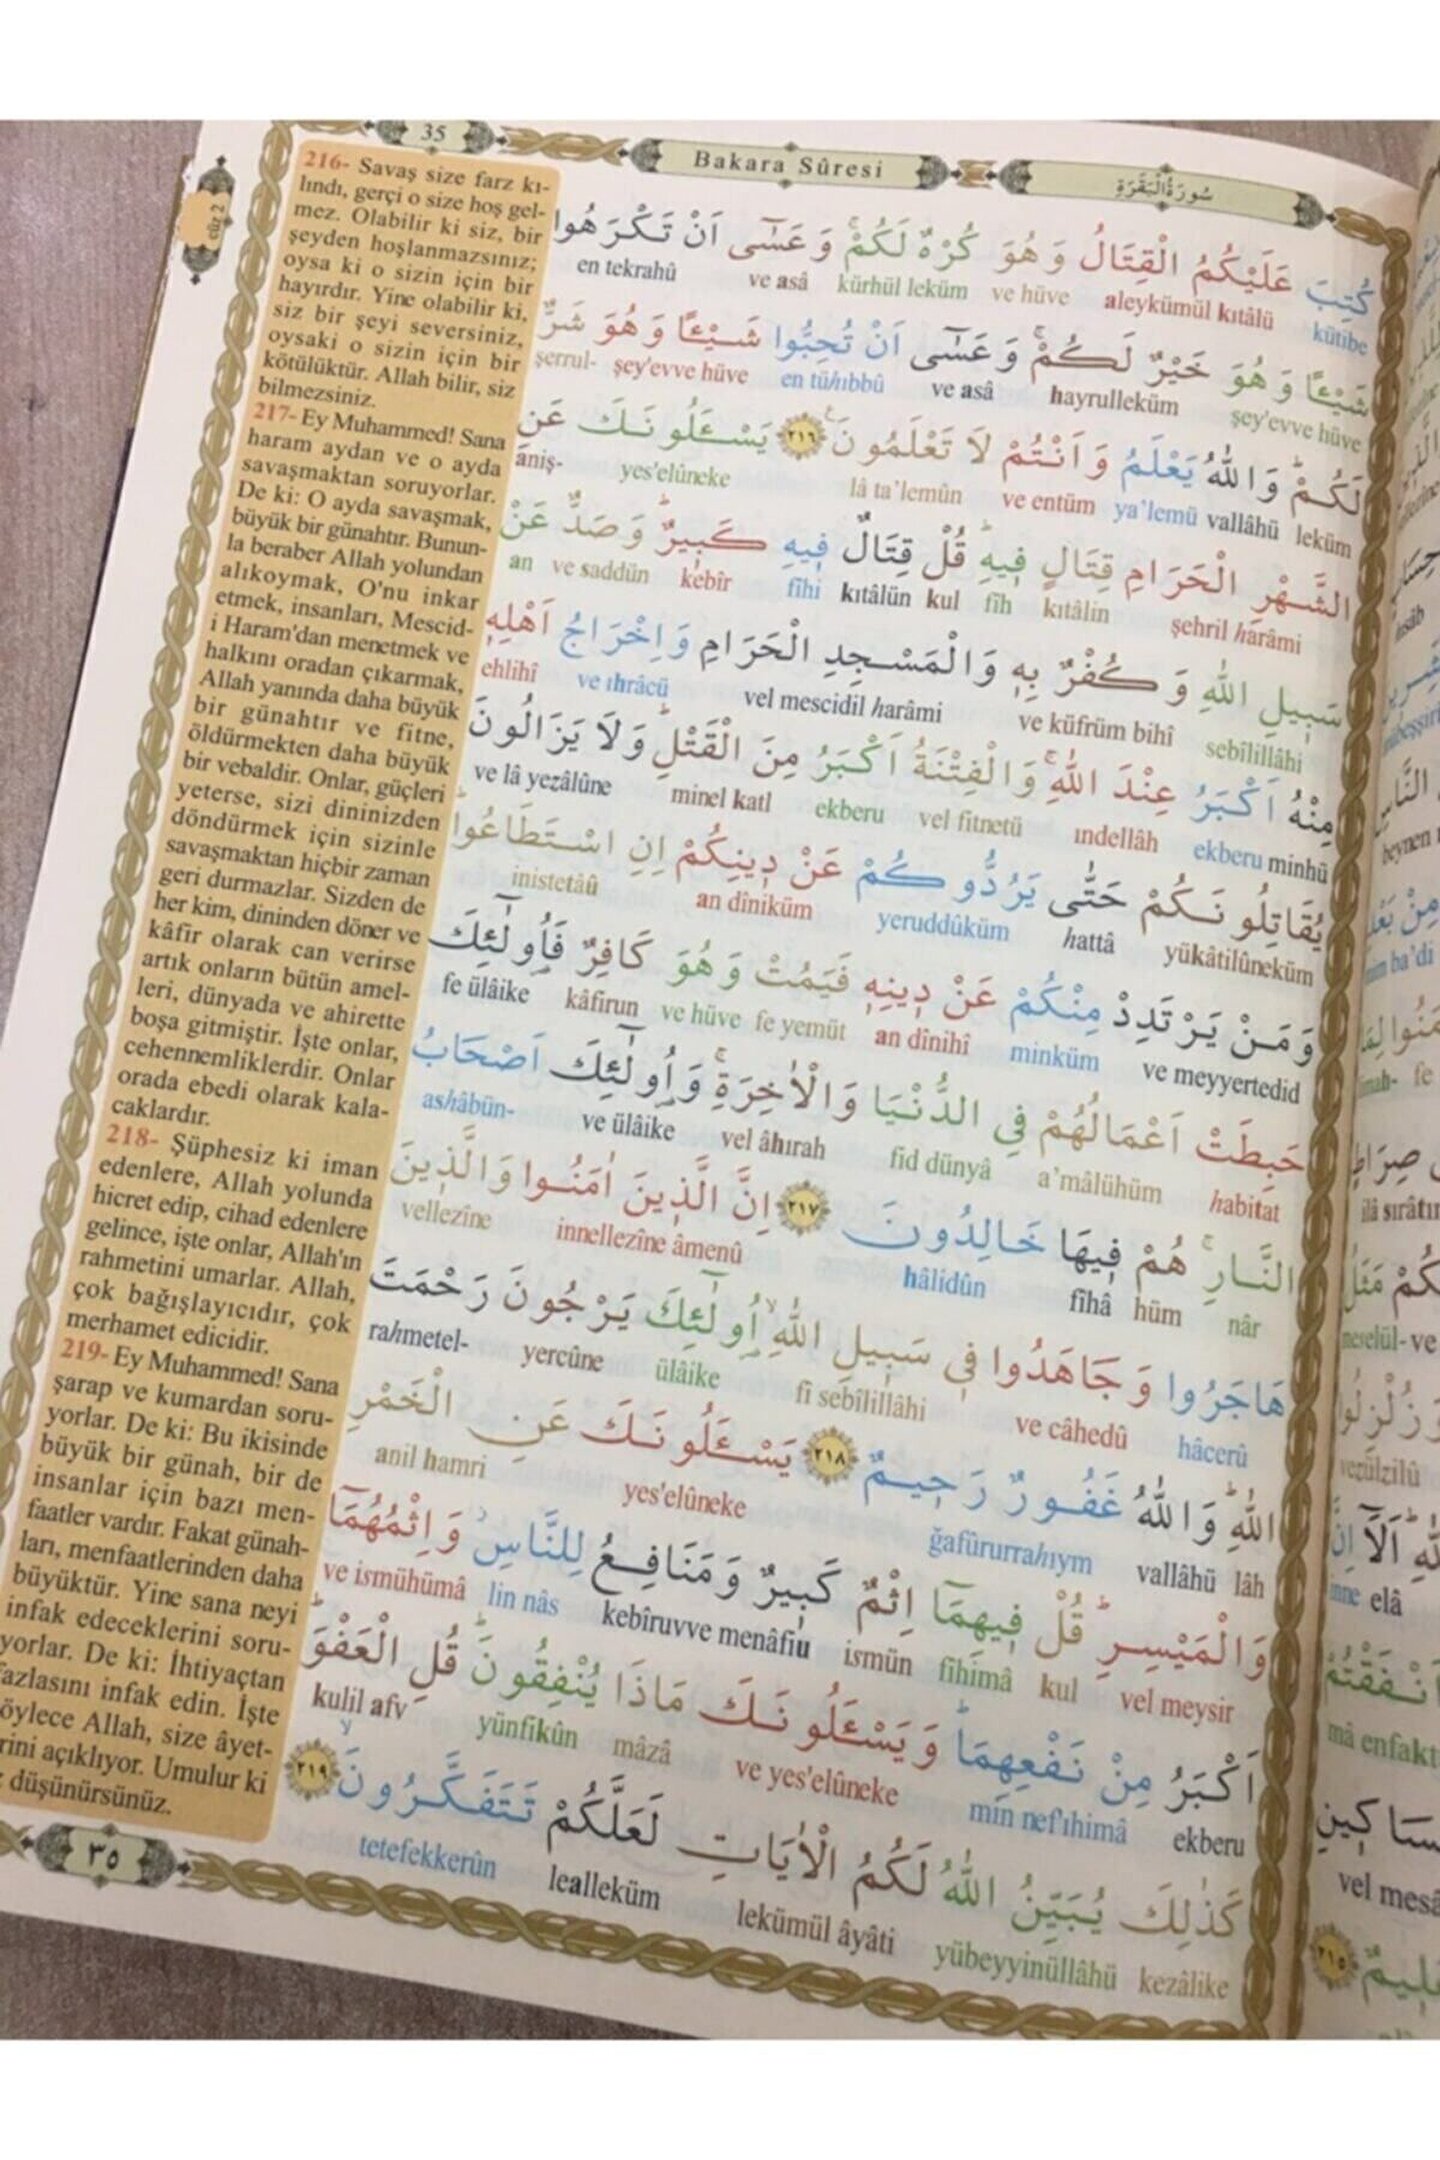 35
Bakara Sûresi
سُورَةُ الْبَقَرَةِ
cüz 2
216- Savaş size farz kı-
lındı, gerçi o size hoş gel-
mez. Olabilir ki siz, bir
şeyden hoşlanmazsınız;
oysa ki o sizin için bir
hayırdır. Yine olabilir ki,
siz bir şeyi seversiniz,
oysaki o sizin için bir
kötülüktür. Allah bilir, siz
bilmezsiniz.
217- Ey Muhammed! Sana
haram aydan ve o ayda
savaşmaktan soruyorlar.
De ki: O ayda savaşmak,
büyük bir günahtır. Bunun-
la beraber Allah yolundan
alıkoymak, O'nu inkar
etmek, insanları, Mescid-
i Haram'dan menetmek ve
halkını oradan çıkarmak,
Allah yanında daha büyük
bir günahtır ve fitne,
öldürmekten daha büyük
bir vebaldir. Onlar, güçleri
yeterse, sizi dininizden
döndürmek için sizinle
savaşmaktan hiçbir zaman
geri durmazlar. Sizden de
her kim, dininden döner ve
kâfir olarak can verirse
artık onların bütün amel-
leri, dünyada ve ahirette
boşa gitmiştir. İşte onlar,
cehennemliklerdir. Onlar
orada ebedi olarak kala-
caklardır.
218- Şüphesiz ki iman
edenlere, Allah yolunda
hicret edip, cihad edenlere
gelince, işte onlar, Allah'ın
rahmetini umarlar. Allah,
çok bağışlayıcıdır, çok
merhamet edicidir.
219- Ey Muhammed! Sana
şarap ve kumardan soru-
yorlar. De ki: Bu ikisinde
büyük bir günah, bir de
insanlar için bazı men-
faatler vardır. Fakat günah-
ları, menfaatlerinden daha
büyüktür. Yine sana neyi
infak edeceklerini soru-
yorlar. De ki: İhtiyaçtan
fazlasını infak edin. İşte
öylece Allah, size âyet-
rini açıklıyor. Umulur ki
düşünürsünüz.
كُتِبَ عَلَيْكُمُ الْقِتَالُ وَهُوَ كُرْهٌ لَكُمْۚ وَعَسٰٓى اَنْ تَكْرَهُوا
kütibe aleykümül kıtâlü ve hüve kürhül leküm ve asâ en tekrahû
شَيْـًٔا وَهُوَ خَيْرٌ لَكُمْۚ وَعَسٰٓى اَنْ تُحِبُّوا شَيْـًٔا وَهُوَ شَرٌّ
şey'evve hüve hayrulleküm ve asâ en tühıbbû şey'evve hüve şerrul-
لَكُمْۜ وَاللّٰهُ يَعْلَمُ وَاَنْتُمْ لَا تَعْلَمُونَ ﴿٢١٦﴾ يَسْـَٔلُونَكَ عَنِ
leküm vallâhü ya'lemü ve entüm lâ ta'lemûn yes'elûneke aniş-
الشَّهْرِ الْحَرَامِ قِتَالٍ ف۪يهِۜ قُلْ قِتَالٌ ف۪يهِ كَب۪يرٌۜ وَصَدٌّ عَنْ
şehril harâmi kıtâlin fîh kul kıtâlün fîhi kebîr ve saddün an
سَب۪يلِ اللّٰهِ وَكُفْرٌ بِه۪ وَالْمَسْجِدِ الْحَرَامِ وَاِخْرَاجُ اَهْلِه۪
sebîlillâhi ve küfrüm bihî vel mescidil harâmi ve ıhrâcü ehlihî
مِنْهُ اَكْبَرُ عِنْدَ اللّٰهِۚ وَالْفِتْنَةُ اَكْبَرُ مِنَ الْقَتْلِۜ وَلَا يَزَالُونَ
minhü ekberu ındellâh vel fitnetü ekberu minel katl ve lâ yezâlûne
يُقَاتِلُونَكُمْ حَتّٰى يَرُدُّوكُمْ عَنْ د۪ينِكُمْ اِنِ اسْتَطَاعُواۜ
yükâtilûneküm hattâ yeruddûküm an dîniküm inistetâû
وَمَنْ يَرْتَدِدْ مِنْكُمْ عَنْ د۪ينِه۪ فَيَمُتْ وَهُوَ كَافِرٌ فَاُو۬لٰٓئِكَ
ve meyyertedid minküm an dînihî fe yemüt ve hüve kâfirun fe ülâike
حَبِطَتْ اَعْمَالُهُمْ فِي الدُّنْيَا وَالْاٰخِرَةِۚ وَاُو۬لٰٓئِكَ اَصْحَابُ
habitat a'mâlühüm fid dünyâ vel âhırah ve ülâike ashâbün-
النَّارِۚ هُمْ ف۪يهَا خَالِدُونَ ﴿٢١٧﴾ اِنَّ الَّذ۪ينَ اٰمَنُوا وَالَّذ۪ينَ
nâr hüm fîhâ hâlidûn innellezîne âmenû vellezîne
هَاجَرُوا وَجَاهَدُوا ف۪ي سَب۪يلِ اللّٰهِۙ اُو۬لٰٓئِكَ يَرْجُونَ رَحْمَتَ
hâcerû ve câhedû fî sebîlillâhi ülâike yercûne rahmetel-
اللّٰهِۜ وَاللّٰهُ غَفُورٌ رَح۪يمٌ ﴿٢١٨﴾ يَسْـَٔلُونَكَ عَنِ الْخَمْرِ
lâh vallâhü ğafûrurrahıym yes'elûneke anil hamri
وَالْمَيْسِرِۜ قُلْ ف۪يهِمَٓا اِثْمٌ كَب۪يرٌ وَمَنَافِعُ لِلنَّاسِۘ وَاِثْمُهُمَٓا
vel meysir kul fîhimâ ismün kebîruvve menâfiu lin nâs ve ismühümâ
اَكْبَرُ مِنْ نَفْعِهِمَاۜ وَيَسْـَٔلُونَكَ مَاذَا يُنْفِقُونَۜ قُلِ الْعَفْوَۜ
ekberu min nef'ıhimâ ve yes'elûneke mâzâ yünfikûn kulil afv
كَذٰلِكَ يُبَيِّنُ اللّٰهُ لَكُمُ الْاٰيَاتِ لَعَلَّكُمْ تَتَفَكَّرُونَۙ ﴿٢١٩﴾
kezâlike yübeyyinüllâhü lekümül âyâti lealleküm tetefekkerûn
٣٥